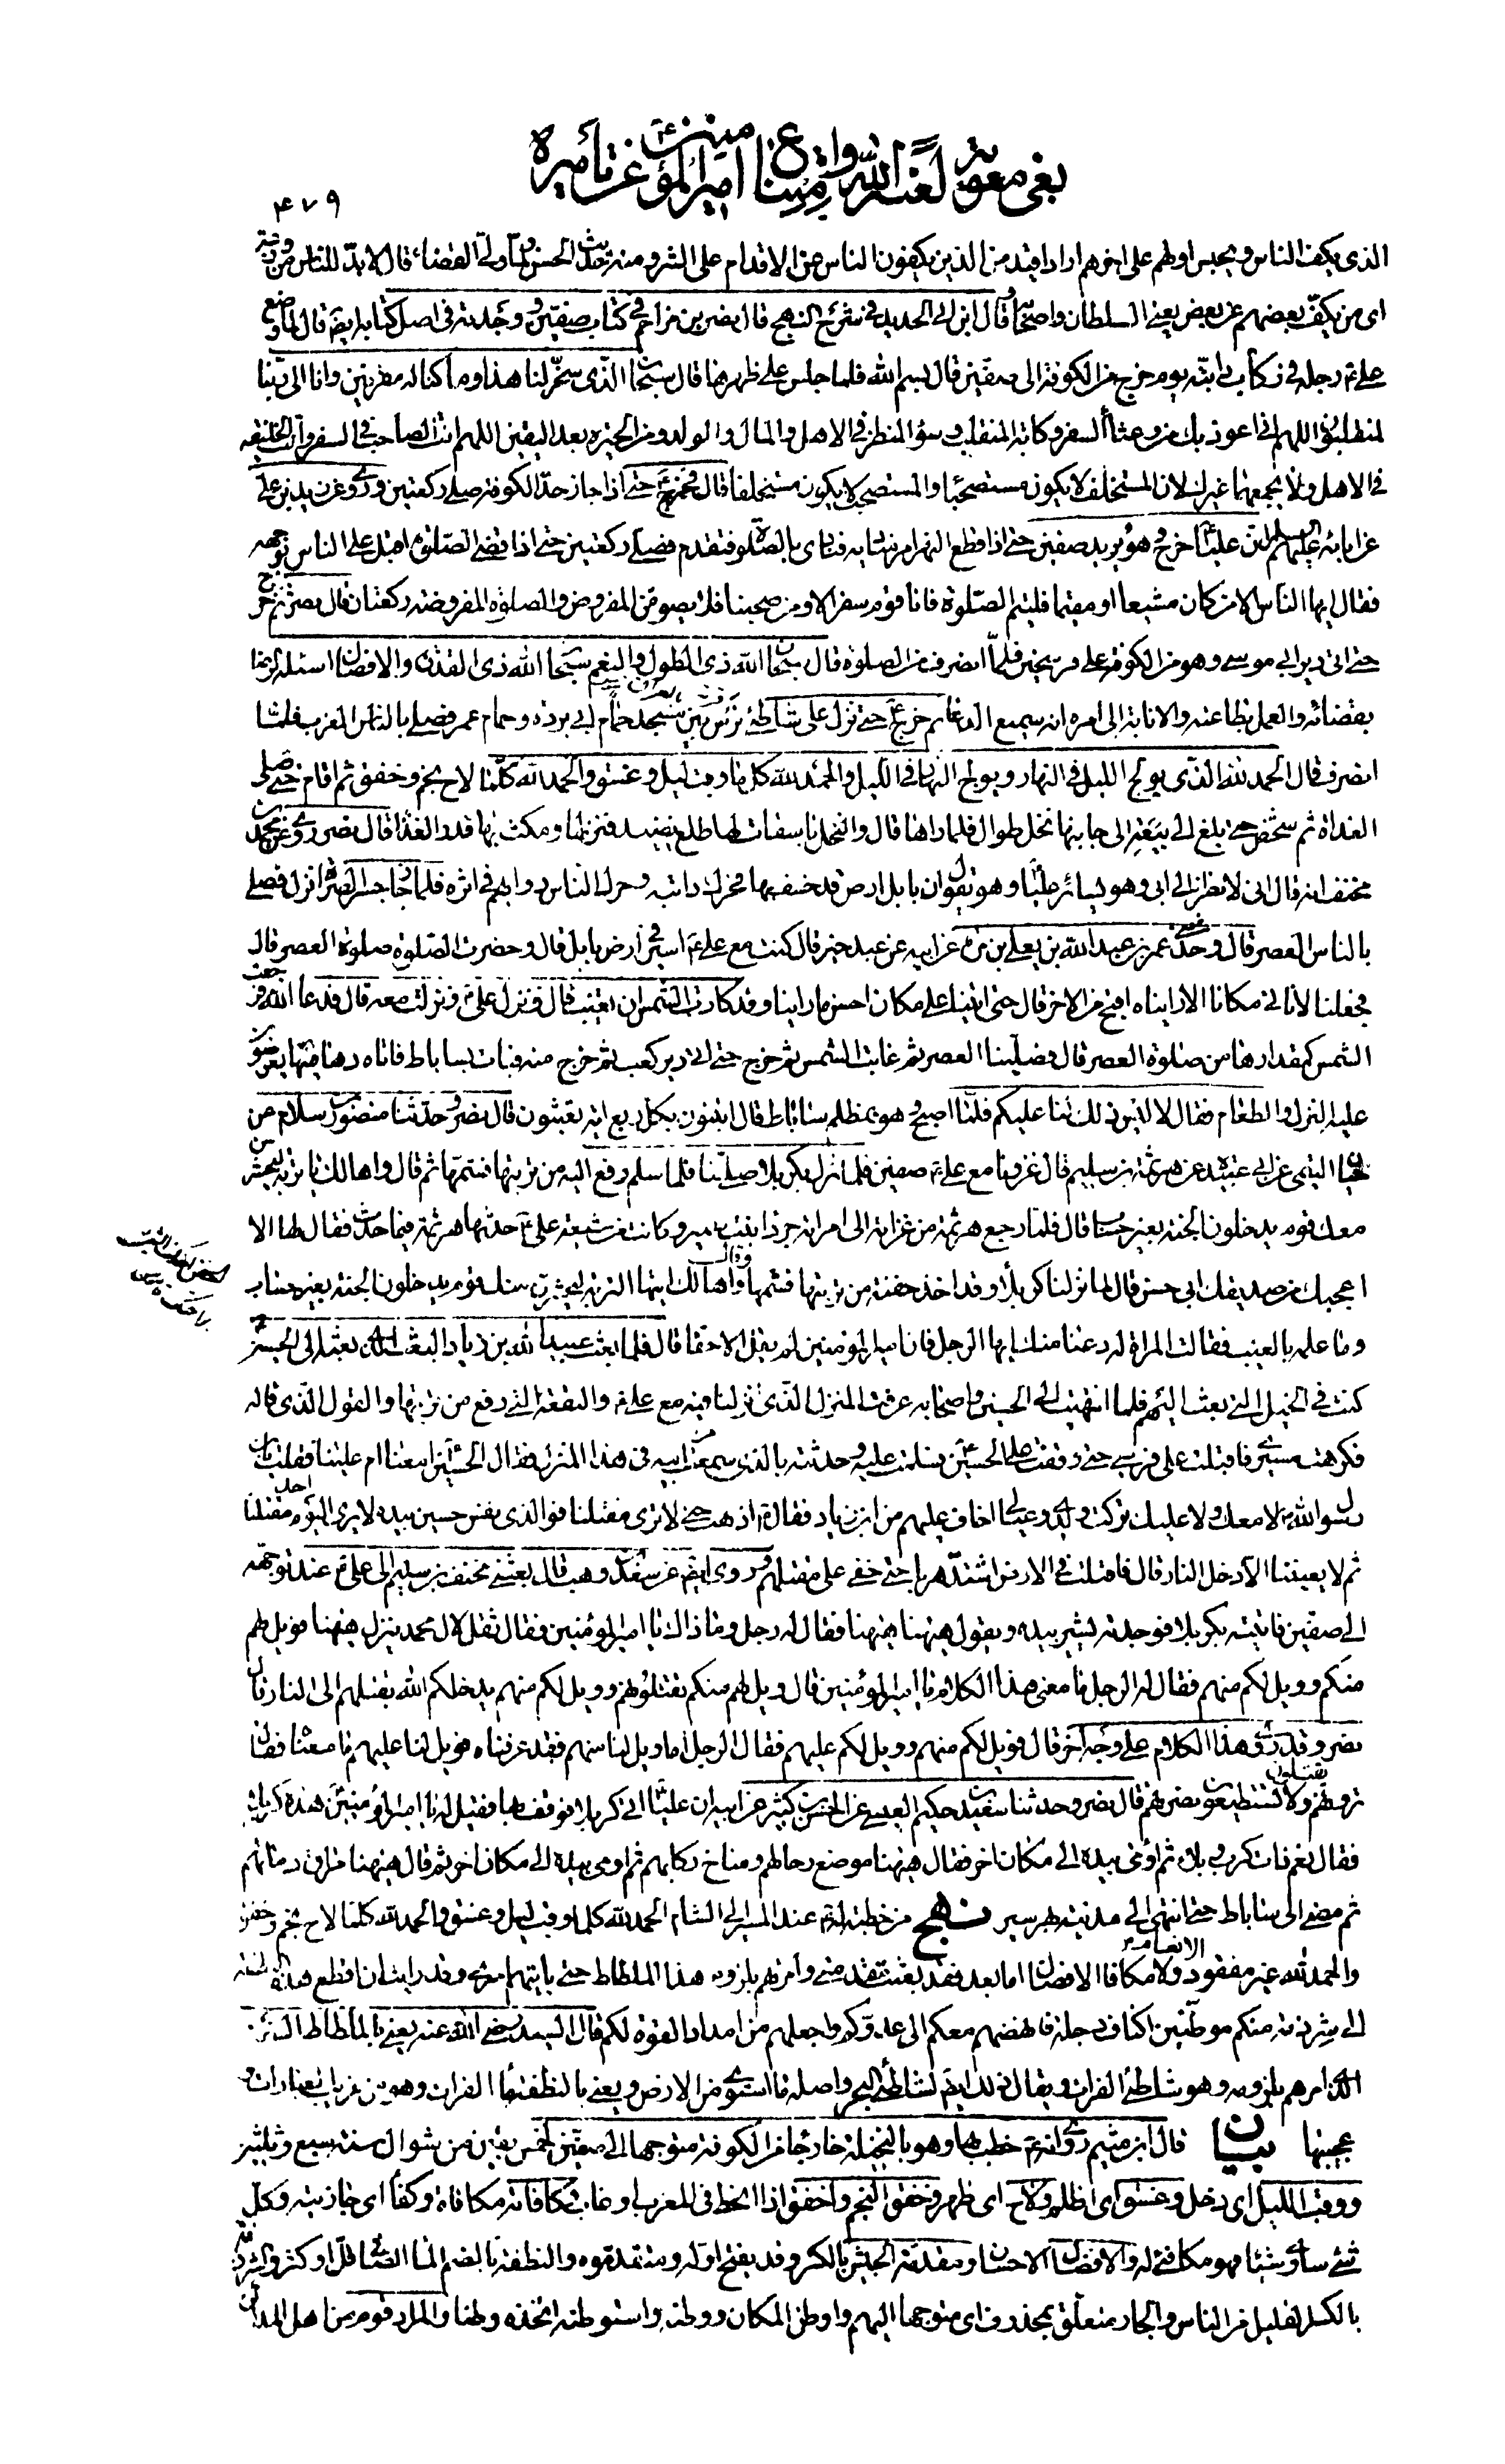 بغى معوية لعنه الله وامتناع امير المؤمنين ع عن تأميره
۴۷۹
الذى يكف الناس ويحبس اولهم على اخرهم اراد افيد من الذين يكفون الناس عن الاقدام على الشر ومنه حديث الحسن لما ولى القضاء قال لا بدّ للناس من وزعة
اى من يكفّ بعضهم عن بعض يعنى السلطان واصحابه قال ابن ابى الحديد فى شرح النهج قال نصر بن مزاحم فى كتاب صفين ووجدته فى اصل كتابه ايضا قال لما وضع
على ع رجله فى ركاب دابته يوم خرج من الكوفة الى صفين قال بسم الله فلما جلس على ظهرها قال سبحان الذى سخّر لنا هذا وما كنا له مقرنين وانا الى ربنا
لمنقلبون اللهم انى اعوذ بك من وعثاء السفر وكابة المنقلب وسؤ المنظر فى الاهل والمال والولد ومن الحيرة بعد اليقين اللهم انت الصاحب فى السفر وانت الخليفة
فى الاهل ولا يجمعهما غيرك لان المستخلف لا يكون مستصحبا والمستصحب لا يكون مستخلفا قال فخرج ع حتى اذا جاز حدّ الكوفة صلى ركعتين وروى عن زيد بن على
عن ابائه عليهم السلم ان عليا ع خرج وهو يريد صفين حتى اذا قطع النهر امر مناديه فنادى بالصلوة فتقدم فصلى ركعتين حتى اذا قضى الصلوة اقبل على الناس بوجهه
فقال ايها الناس الا من كان مشيعا او مقيما فليتم الصلوة فانا قوم سفر الا ومن صحبنا فلا يصومن المفروض والصلوة المفروضة ركعتان قال نصر ثم خرج
حتى اتى دير ابى موسى وهو من الكوفة على فرسخين فلما انصرف من الصلوة قال سبحان الله ذى الطول والنعم سبحان الله ذى القدرة والافضال اسئله الرضا
بقضائه والعمل بطاعته والانابة الى امره انه سميع الدعاء ثم خرج ع حتى نزل على شاطئ نرس بين مسجد حمام ابى بردة وحمام عمر فصلى بالناس المغرب فلما
انصرف قال الحمد لله الذى يولج الليل فى النهار ويولج النهار فى الليل والحمد لله كلما وقب ليل وغسق والحمد لله كلما لاح نجم وخفق ثم اقام حتى صلى
الغداة ثم شخص حتى بلغ الى بيعة الى جانبها نخل طوال فلما راها قال والنخل باسقات لها طلع نضيد فنزلها ومكث بها قدر الغداء قال نصر وروى عن محمد بن
مخنف انه قال انى لانظر الى ابى وهو يسائر عليا وهو يقول ان بابل ارض قد خسف بها فحرك دابته وحرك الناس دوابهم فى اثره فلما جاز جسر الصراة نزل فصلى
بالناس العصر قال وحدثنى عمر بن عبد الله بن يعلى بن مرة عن ابيه عن عبد خير قال كنت مع على ع اسير فى ارض بابل قال وحضرت الصلوة صلوة العصر قال
فجعلنا لا ناتى مكانا الا رايناه اقبح من الاخر قال حتى اتينا على مكان احسن ما راينا وقد كادت الشمس ان تغيب قال فنزل على ع ونزلت معه قال فدعا الله فرجعت
الشمس كمقدارها من صلوة العصر قال فصلينا العصر ثم غابت الشمس ثم خرج حتى اتى دير كعب ثم خرج منه فبات بساباط فاتاه دهاقينها يعرضون
عليه النزل والطعام فقال لا ليس ذلك لنا عليكم فلما اصبح وهو بمظلم ساباط قال اتبنون بكل ريع اية تعبثون قال نصر وحدثنا منصور بن سلام عن
حيان التيمى عن ابى عبيدة عن هرثمة بن سليم قال غزونا مع على ع صفين فلما نزل بكربلا صلى بنا فلما سلم رفع اليه من تربتها فشمّها ثم قال واها لك يا تربة ليحشرن
معك قوم يدخلون الجنة بغير حساب قال فلما رجع هرثمة من غزاته الى امراته جرداء بنت سمير وكانت من شيعة على ع حدثها هرثمة فيما حدث فقال لها الا
اعجبك من صديقك ابى حسن قال لما نزلنا كربلا وقد اخذ حفنة من تربتها فشمها وقال واها لك ايتها التربة ليحشرن منك قوم يدخلون الجنة بغير حساب
وما علمه بالغيب فقالت المراة له دعنا منك ايها الرجل فان امير المؤمنين لم يقل الا حقا قال فلما بعث عبيد الله بن زياد البعث الذى بعثه الى الحسين ع
كنت فى الخيل التى بعث اليهم فلما انتهيت الى الحسين واصحابه عرفت المنزل الذى نزلنا فيه مع على ع والبقعة التى رفع من تربتها والقول الذى قاله
فكرهت مسيرى فاقبلت على فرسى حتى وقفت على الحسين ع فسلمت عليه وحدثته بالذى سمعت من ابيه فى هذا المنزل فقال الحسين امعنا ام علينا فقلت يا بن
رسول الله لا معك ولا عليك تركت ولدى وعيالى اخاف عليهم من ابن زياد فقال ع اذهب حتى لا ترى مقتلنا فو الذى نفس حسين بيده لا يرى اليوم مقتلنا احد
ثم لا يعيننا الا دخل النار قال فاقبلت فى الارض اشتد هربا حتى خفى على مقتلهم وروى ايضا عن سعد بن وهب قال بعثنى مخنف بن سليم الى على ع عند توجهه
الى صفين فاتيته بكربلا فوجدته يشير بيده ويقول هيهنا هيهنا فقال له رجل وما ذاك يا امير المؤمنين فقال ثقل لال محمد ينزل هيهنا فويل لهم
منكم وويل لكم منهم فقال له الرجل ما معنى هذا الكلام يا امير المؤمنين قال ويل لهم منكم تقتلونهم وويل لكم منهم يدخلكم الله بقتلهم الى النار قال
نصر وقد روى هذا الكلام على وجه اخر قال فويل لكم منهم وويل لكم عليهم فقال الرجل اما ويل لنا منهم فقد عرفناه فويل لنا عليهم ما معناه فقال
ترونهم يقتلون ولا تستطيعون نصرهم قال نصر وحدثنا سعيد بن حكيم العبسى عن الحسن بن كثير عن ابيه ان عليا اتى كربلا فوقف بها فقيل له يا امير المؤمنين هذه كربلا
فقال نعم ذات كرب وبلاء ثم اومى بيده الى مكان اخر فقال هيهنا موضع رحالهم ومناخ ركابهم ثم اومى بيده الى مكان اخر ثم قال هيهنا مراق دمائهم
ثم مضى الى ساباط حتى انتهى الى مدينة بهرسير نهج من خطبة له ع عند المسير الى الشام الحمد لله كلما وقب ليل وغسق والحمد لله كلما لاح نجم وخفق
والحمد لله غير مفقود الانعام ولا مكافا الافضال اما بعد فقد بعثت مقدمتى وامرتهم بلزوم هذا الملطاط حتى ياتيهم امرى وقد رايت ان اقطع هذه النطفة
الى شرذمة منكم موطنين اكناف دجلة فانهضهم معكم الى عدوكم واجعلهم من امداد القوة لكم قال السيد رضى الله عنه يعنى بالملطاط السمت
الذى امرهم بلزومه وهو شاطئ الفرات ويقال ذلك ايضا لشاطئ البحر واصله ما استوى من الارض ويعنى بالنطفة ماء الفرات وهو من غريب العبارات و
عجيبها بيان قال ابن ميثم روى انه ع خطب بها وهو بالنخيلة خارجا من الكوفة متوجها الى صفين لخمس بقين من شوال سنة سبع وثلثين
ووقب الليل اى دخل وغسق اى اظلم ولاح اى ظهر وخفق النجم واخفق اذا انحط فى المغرب او غاب وكافاته مكافاة وكفاء اى جازيته وكل
شئ ساوى شيئا فهو مكافئ له والافضال الاحسان ومقدمة الجيش بالكسر وقد يفتح اوله ومتقدموه والنطفة بالضم الماء الصافى قل او كثر والشرذمة
بالكسر القليل من الناس والجار متعلق بمحذوف اى متوجها اليهم واوطن المكان ووطنه واستوطنه اتخذه وطنا والمراد قوم من اهل المدائن